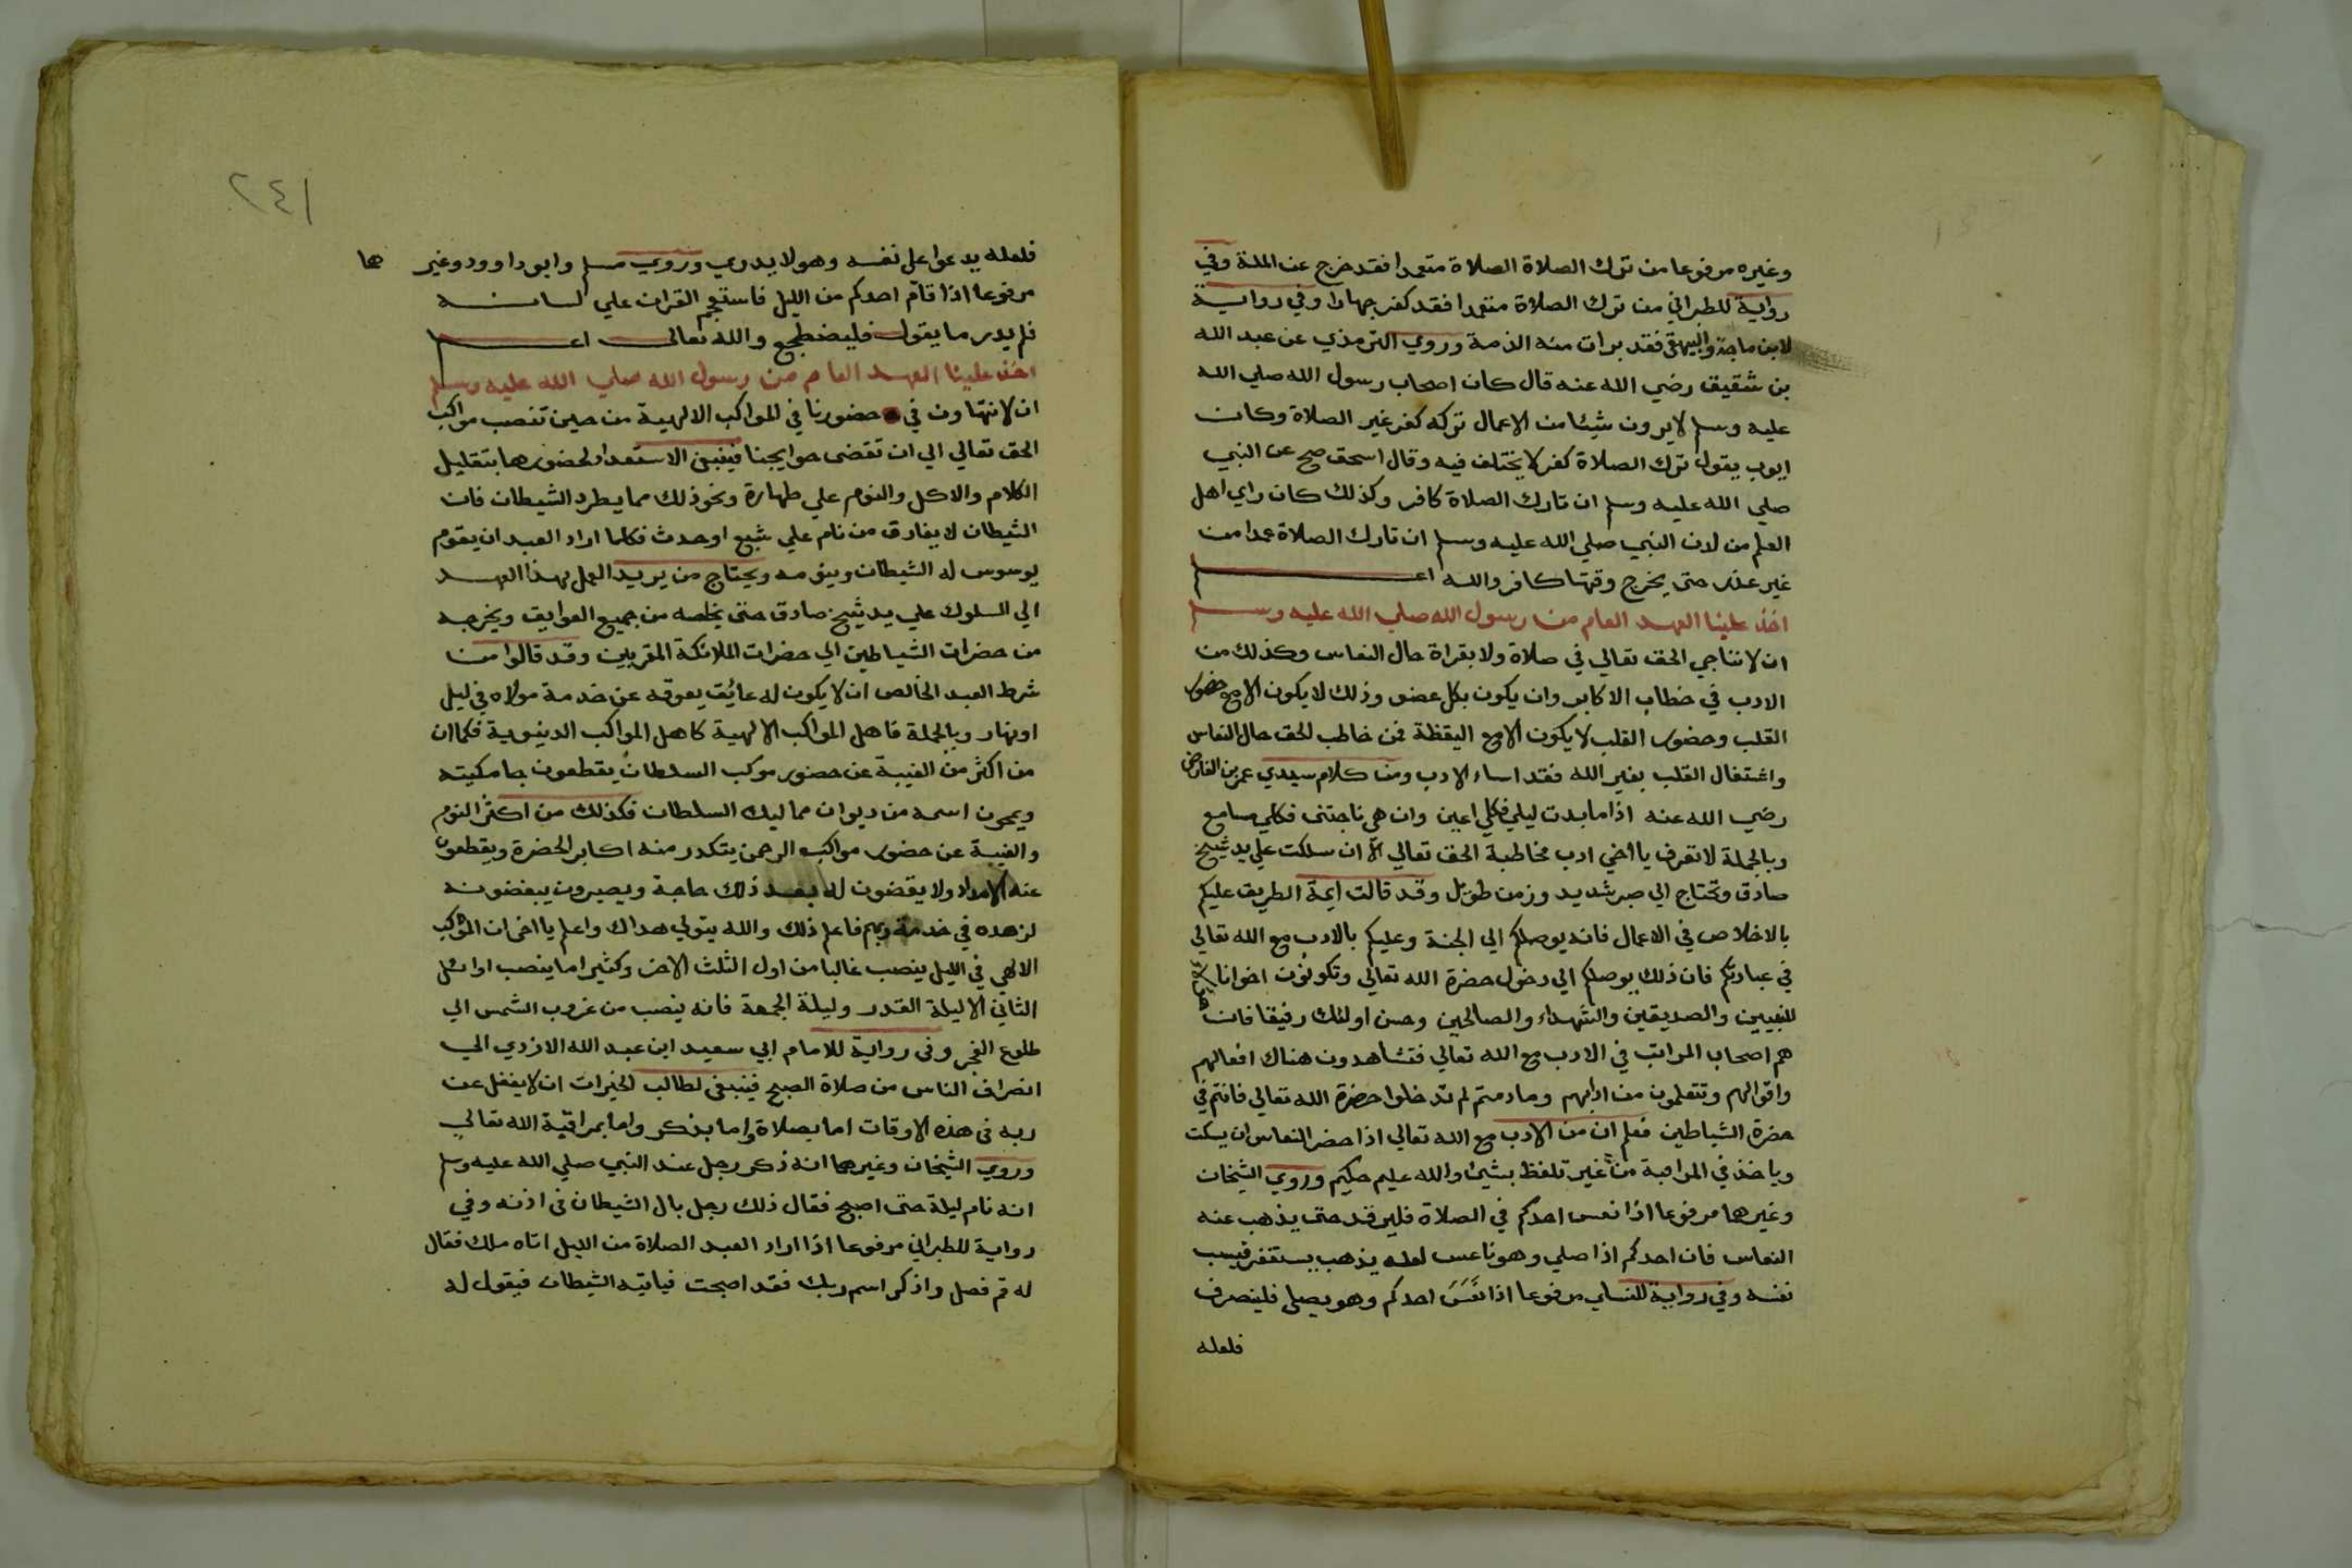 وغيره مرفوعا من ترك الصلاة الصلاة متعمدا فقد خرج عن الملة وفي
رواية للطبراني من ترك الصلاة متعمدا فقد كفر جهارا وفي رواية
لابن ماجة والبيهقي فقد برات منه الذمة وروي الترمذي عن عبد الله
بن شقيق رضي الله عنه قال كان اصحاب رسول الله صلي الله
عليه وسلم لا يرون شيئا من الاعمال تركه كفر غير الصلاة وكان
ايوب يقول ترك الصلاة كفر لا يختلف فيه وقال اسحق صح عن النبي
صلي الله عليه وسلم ان تارك الصلاة كافر وكذلك كان راي اهل
العلم من لدن النبي صلي الله عليه وسلم ان تارك الصلاة عمدا من
غير عذر حتى يخرج وقتها كافر والله اعلم
اخذ علينا العهد العام من رسول الله صلي الله عليه وسلم
ان لا نناجي الحق تعالي في صلاة ولا بقراة حال النعاس وكذلك من
الادب في خطاب الاكابر وان يكون بكل عضو وذلك لا يكون الا مع حضور
القلب وحضور القلب لا يكون الا مع اليقظة فمن خاطب الحق حال النعاس
واشتغال القلب بغير الله فقد اساء الادب ومن كلام سيدي عمر بن الفارض
رضي الله عنه اذا ما بدت ليلي فكلي اعين وان هي ناجتنى فكلي مسامع
وبالجملة لا تعرف يا اخي ادب مخاطبة الحق تعالي الا ان سلكت علي يد شيخ
صادق وتحتاج الي صبر شديد وزمن طويل وقد قالت ايمة الطريق عليكم
بالاخلاص في الاعمال فانه يوصلكم الي الجنة وعليكم بالادب مع الله تعالي
في عبادتكم فان ذلك يوصلكم الي دخول حضرة الله تعالي وتكونون اخوانا
للنبيين والصديقين والشهداء والصالحين وحسن اولئك رفيقا فان هولاء
هم اصحاب المراتب في الادب مع الله تعالي فتشاهدون هناك افعالهم
واقوالهم وتتعلمون من ادابهم وما دمتم لم تدخلوا حضرة الله تعالي فانتم في
حضرة الشياطين فعلم ان من الادب مع الله تعالي اذا حضر النعاس ان يسكت
وياخذ في المراقبة من غير تلفظ بشيء والله عليم حكيم وروي الشيخان
وغيرها مرفوعا اذا نعس احدكم في الصلاة فليرقد حتى يذهب عنه
النعاس فان احدكم اذا صلي وهو ناعس لعله يذهب يستغفر فيسب
نفسه وفي رواية للنساي مرفوعا اذا نَعَسَ احدكم وهو يصلي فلينصرف
فلعله
٢٤١
فلعله يدعوا علي نفسه وهو لا يدري وروي مسلم وابو داوود وغيرها
مرفوعا اذا قام احدكم من الليل فاستعجم القران علي لسانه
فلم يدر ما يقول فليضطجع والله تعالي اعلم
اخذ علينا العهد العام من رسول الله صلي الله عليه وسلم
ان لا نتهاون في حضورنا في المواكب الالهية من حين تنصب مواكب
الحق تعالي الي ان تقضى حوايجنا فينبغي الاستعداد لحضورها بتقليل
الكلام والاكل والنوم علي طهارة ونحو ذلك مما يطرد الشيطان فان
الشيطان لا يفارق من نام علي شبع او حدث فكلما اراد العبد ان يقوم
يوسوس له الشيطان وينومه ويحتاج من يريد العمل بهذا العهد
الي السلوك علي يد شيخ صادق حتى يخلصه من جميع العوايق ويخرجه
من حضرات الشياطين الي حضرات الملائكة المقربين وقد قالوا من
شرط العبد الخالص ان لا يكون له عائق يعوقه عن خدمة مولاه في ليل
او نهار وبالجملة فاهل المواكب الالهية كاهل المواكب الدينوية فكما ان
من اكثر من الغيبة عن حضور موكب السلطان يقطعون جامكيته
ويمحون اسمه من ديوان مماليك السلطان فكذلك من اكثر النوم
والغيبة عن حضور مواكب الرحمن يتكدر منه اكابر الحضرة ويقطعون
عنه الامداد ولا يقضون له بعد ذلك حاجة ويصيرون يبغضونه
لزهده في خدمة ربهم فاعلم ذلك والله يتولي هداك واعلم يا اخى ان الموكب
الالهي في الليل ينصب غالبا من اول الثلث الاخر وكثيرا ما ينصب اوائل
الثاني الا ليلة القدر وليلة الجمعة فانه ينصب من غروب الشمس الي
طلوع الفجر وفى رواية للامام ابي سعيد ابن عبد الله الازدي الي
انصراف الناس من صلاة الصبح فينبغى لطالب الخيرات ان لا يغفل عن
ربه فى هذه الاوقات اما بصلاة واما بذكر واما بمراقبة الله تعالي
وروي الشيخان وغيرهما انه ذكر رجل عند النبي صلي الله عليه وسلم
انه نام ليلة حتى اصبح فقال ذلك رجل بال الشيطان فى اذنه وفي
رواية للطبراني مرفوعا اذا اراد العبد الصلاة من الليل اتاه ملك فقال
له قم فصل واذكر اسم ربك فقد اصبحت فياتيه الشيطان فيقول له